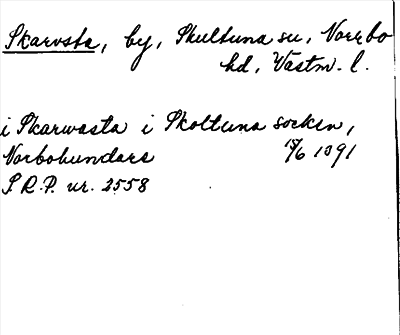 Skarvsta, by, Skultuna sn, Norrbo
hd, Västm. l.
i Skarwasta i Skoltuna socken,
Norbohundare 15/6 1391
S R.P. nr. 2558